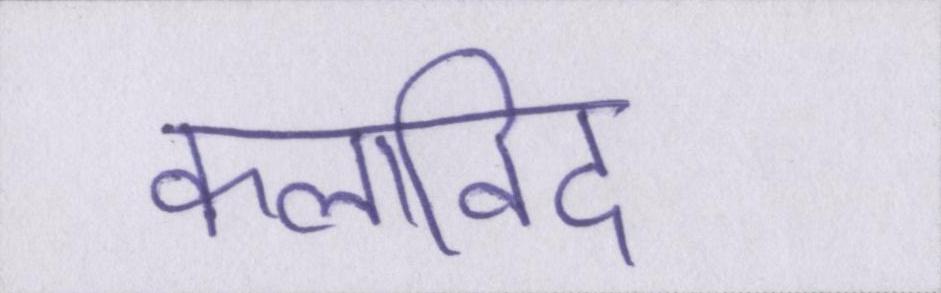 कलाविद